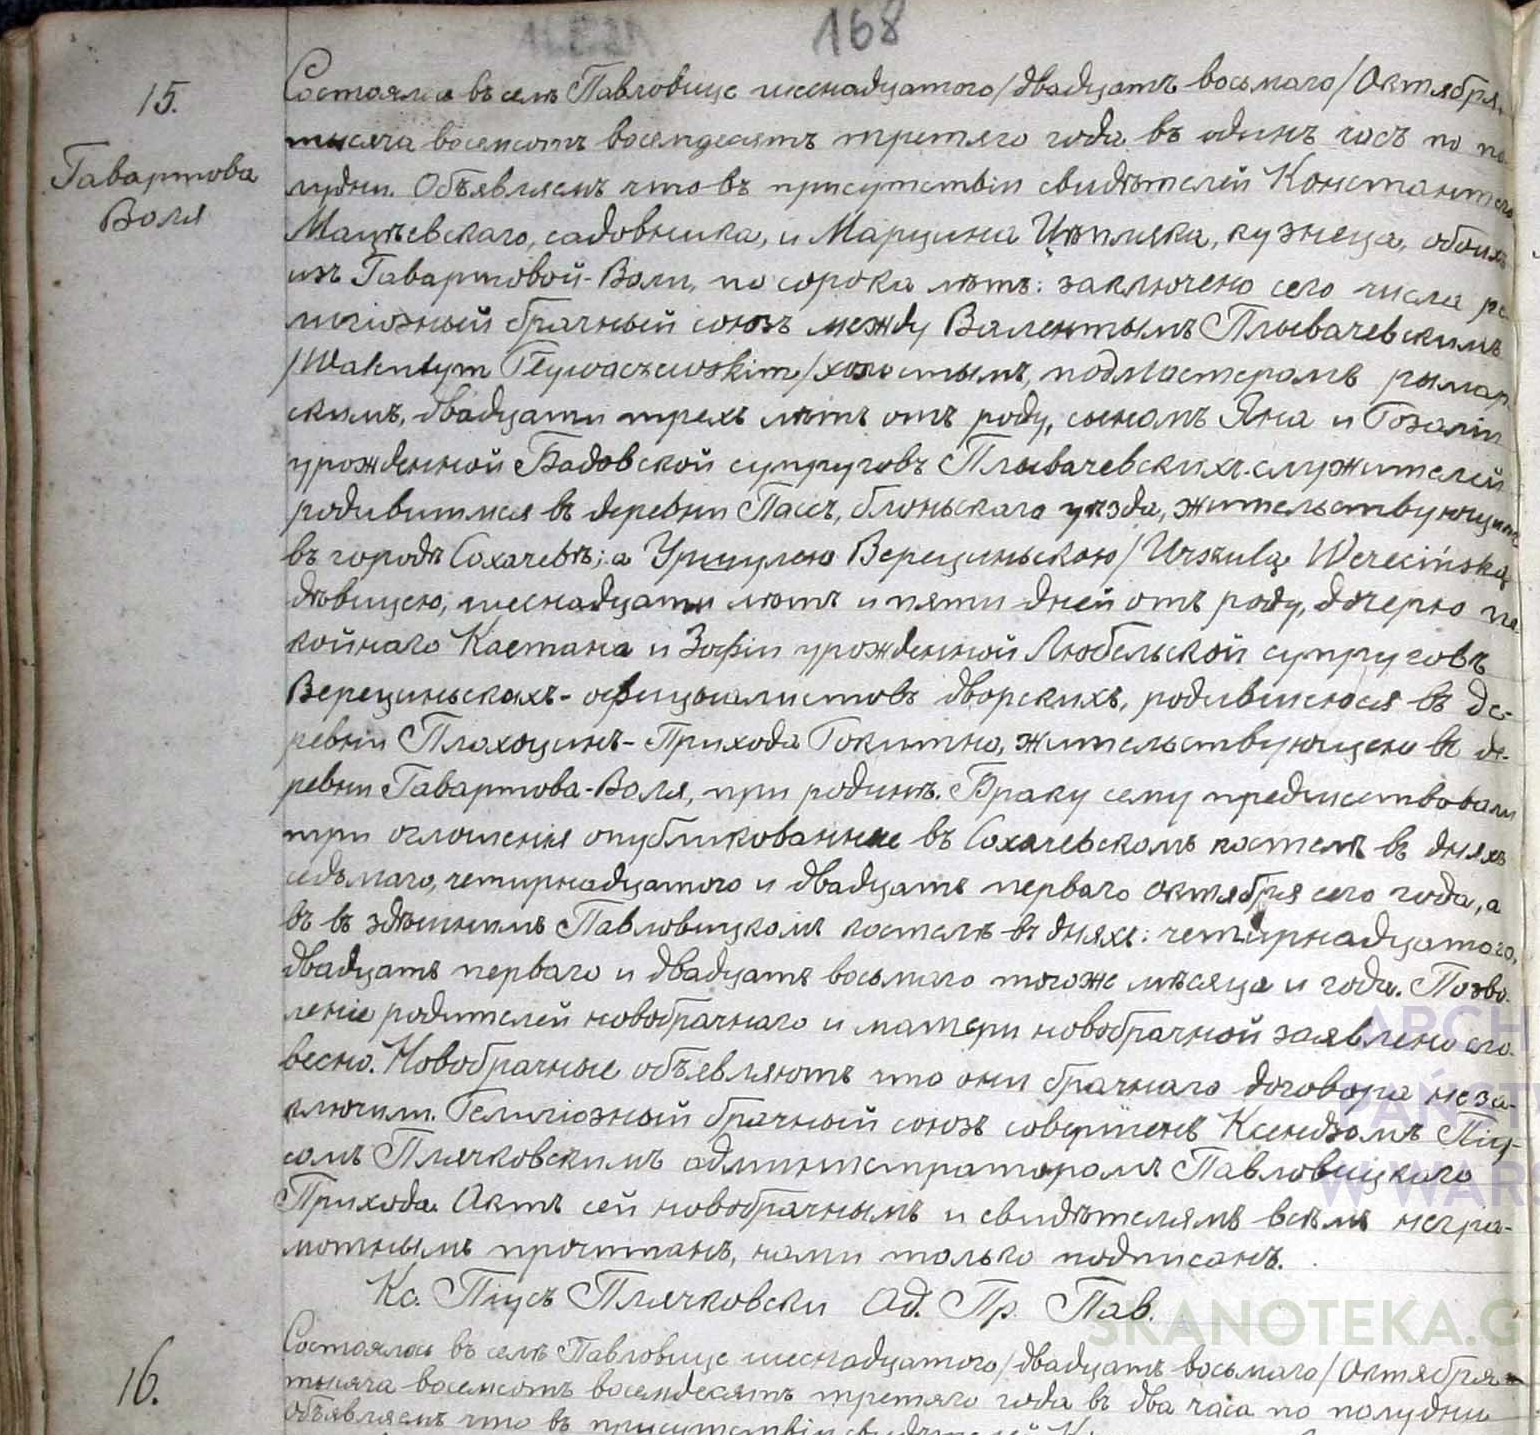 168
15.
Гавартова
Воля
Состоялся въ селѣ Павловице шеснадцатого /двадцать восьмаго/ Октября
тысяча восемсотъ восемдесятъ третяго года въ одинъ часъ по по-
лудни. Объявляемъ что въ присутствіи свидѣтелей Константего
Мацѣевскаго, садовника, и Марцина Цѣпляка, кузнеца, обоихъ
изъ Гавартовой-Воли, по сорока лѣтъ: заключено сего числа ре-
лигіозный брачный союзъ между Валентымъ Плывачевскимъ
/Walentym Pływaczewskim/ холостымъ, подмастеромъ рымар-
скимъ, двадцати трехъ лѣтъ отъ роду, сыномъ Яна и Розаліи
урожденной Бадовской супруговъ Плывачевскихъ служителей
родившимся въ деревни Пассъ, блоньскаго уѣзда, жительствующимъ
въ городѣ Сохачевѣ; а Уршулею Верециньскою /Urszulą Werecińską
дѣвицею, шеснадцати лѣтъ и пяти дней отъ роду, дочерю по-
койнаго Каетана и Зофіи урожденной Любельской супруговъ
Верециньскихъ - офицыалистовъ дворскихъ, родившеюся въ де-
ревни Плохоцинъ - Прихода Рокитно, жительствующею въ де-
ревни Гавартова-Воля, при родинѣ. Браку сему предшествовали
три оглошенія опубликованные въ Сохачевскомъ костелѣ въ дняхъ
седьмаго, четырнадцатого и двадцать перваго октября сего года, а
въ въ здѣшнимъ Павловицкомъ костелѣ въ дняхъ: четырнадцатого,
двадцать перваго и двадцать восьмаго тогоже мѣсяца и года. Позво-
леніе родителей новобрачнаго и матери новобрачной заявлено сло-
весно. Новобрачные объевляютъ что они брачнаго договора не за-
ключили. Религіозный брачный союзъ совершенъ Ксендзомъ Піу-
сомъ Плячковскимъ администраторомъ Павловицкаго
Прихода. Актъ сей новобрачнымъ и свидѣтелямъ всѣмъ негра-
мотнымъ прочитанъ, нами только подписанъ.
Кс. Піусъ Плячковски Ад. Пр. Пав.
16.
Состоялось въ селѣ Павловице шеснадцатого /двадцать восьмаго/ Октября
тысяча восемсотъ восемдесятъ третяго года въ два часа по полудни
Объявляемъ что въ присутствіи свидѣтелей
ARCH
PAŃST
W WAR
SKANOTEKA.G